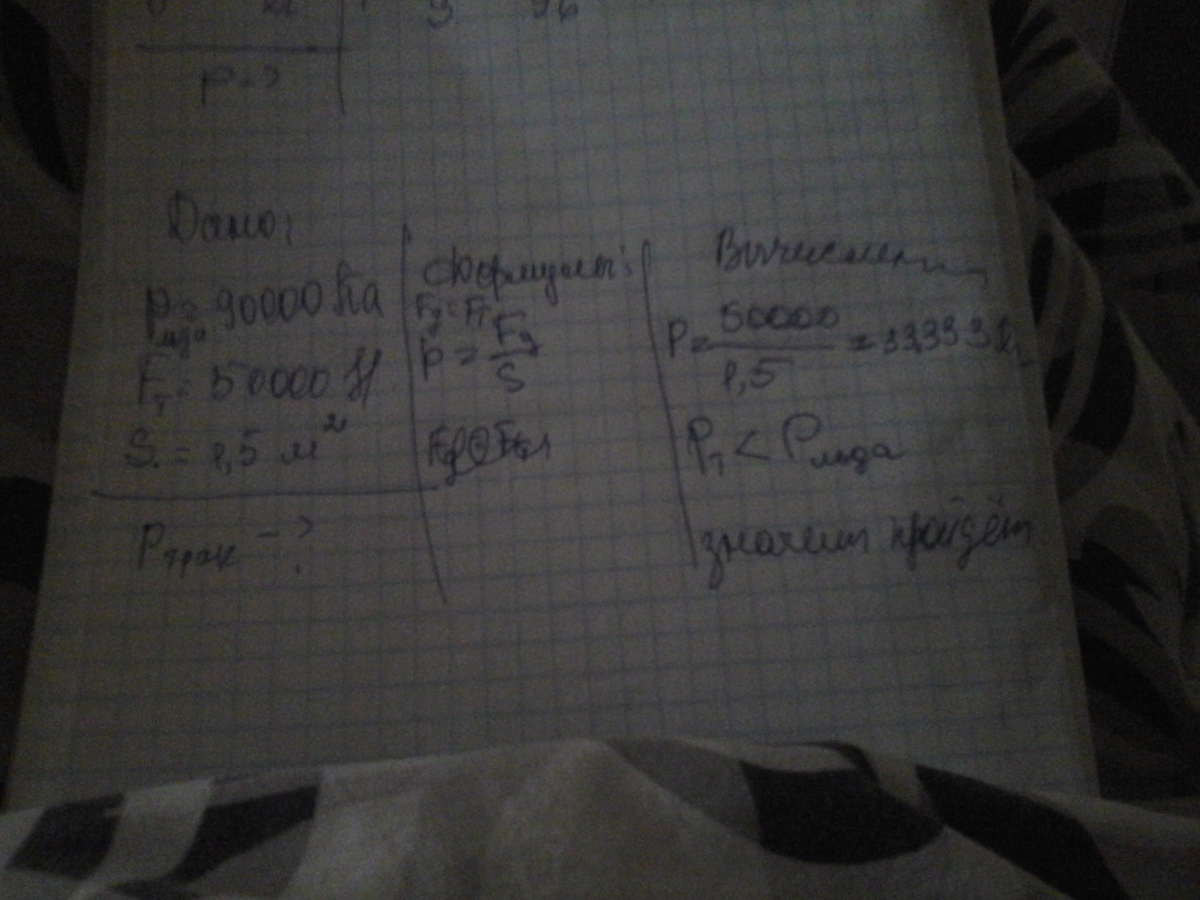 p - ?
Дано:
Pльда = 90000 Па
Fт = 50000 Н
S = 1,5 м²
Pтрак - ?
Формулы:
Fд = Fт
p = Fд/S
Вычислени
P = 50000/1,5 = 33333
Pт < Pльда
значит пройдёт